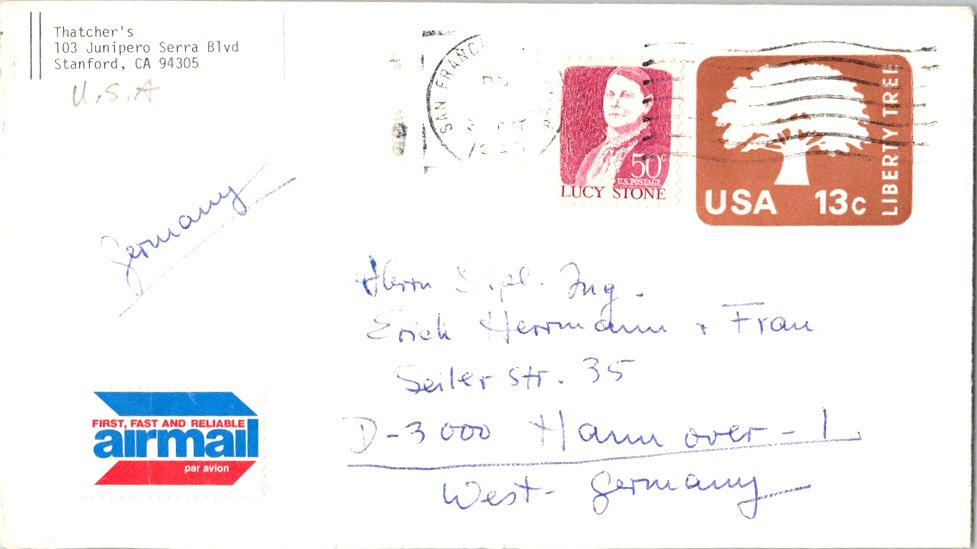 Thatcher's
103 Junipero Serra Blvd
Stanford, CA 94305
U.S.A
SAN FRANC
PM
50c
U.S. POSTAGE
LUCY STONE
USA 13c
LIBERTY TREE
Germany
Herrn Dipl. Ing.
Erich Herrmann + Frau
Seilerstr. 35
D-3000 Hannover-1
West-Germany
FIRST, FAST AND RELIABLE
airmail
par avion